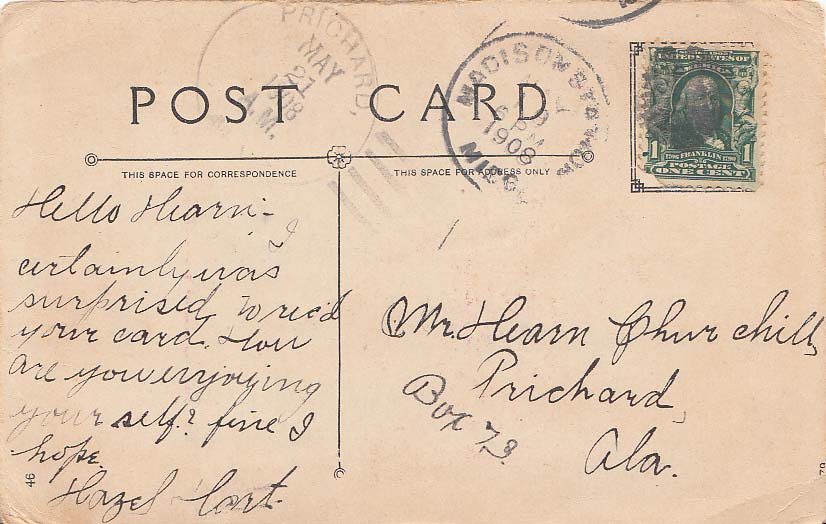 PRICHARD,
MAY
27
1908
A.M.
POST CARD
MADISON STATION
6 PM
1908
MISS
UNITED STATES OF
AMERICA
1 1706 FRANKLIN 1790 1
POSTAGE
ONE CENT
THIS SPACE FOR CORRESPONDENCE
THIS SPACE FOR ADDRESS ONLY
Hello Hearn- I
certainly was
surprised to rec'd
your card. How
are you enjoying
your self? fine I
hope.
Hazel
Mr. Hearn Churchill,
Prichard,
Box 73.
Ala.
46
79